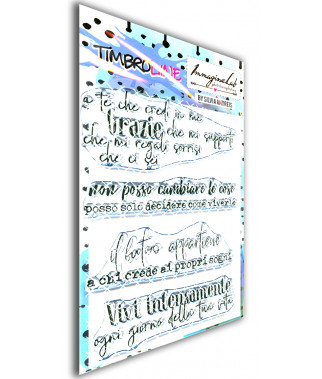 TIMBROLINE
ImmaginaLab
BY SILVIA
a te che credi in me
Grazie che mi supporti
che mi regali sorrisi
che ci sei
non posso cambiare le cose
posso solo decidere come viverle
il futuro appartiene
a chi crede ai propri sogni
Vivi intensamente
ogni giorno della tua vita